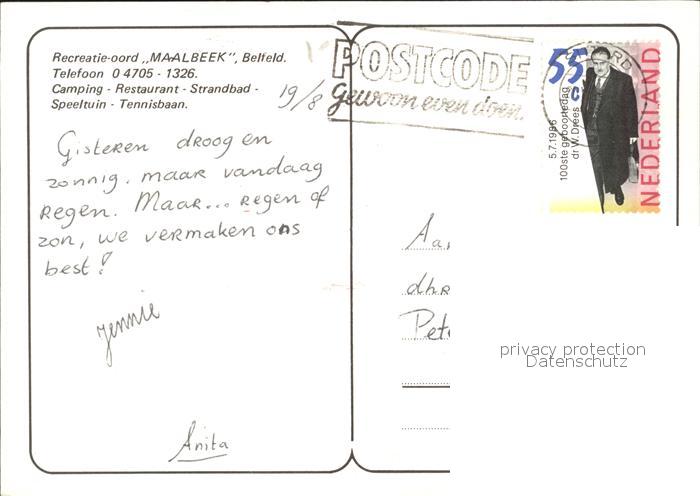 Recreatie-oord „MAALBEEK", Belfeld.
Telefoon 0 4705 - 1326.
Camping - Restaurant - Strandbad -
Speeltuin - Tennisbaan.
19/8
POSTCODE
Gewoon even doen.
55 c
5.7.1986
100ste geboortedag
dr W. Drees
NEDERLAND
Gisteren droog en
zonnig. maar vandaag
regen. Maar... regen of
zon, we vermaken ons
best!
Jennie
Anita
Aa
dhr
Pete
privacy protection
Datenschutz